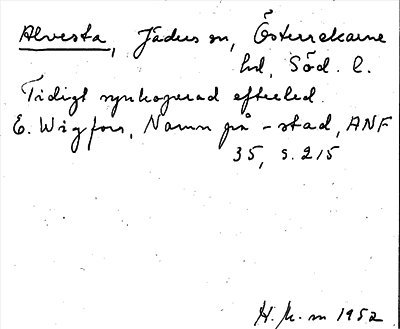 Alvesta, Jäders sn, Österrekarne
hd, Söd. l.
Tidigt synkoperad efterled.
E. Wigfors, Namn på -stad, ANF
35, s. 215
H. M. m 1952